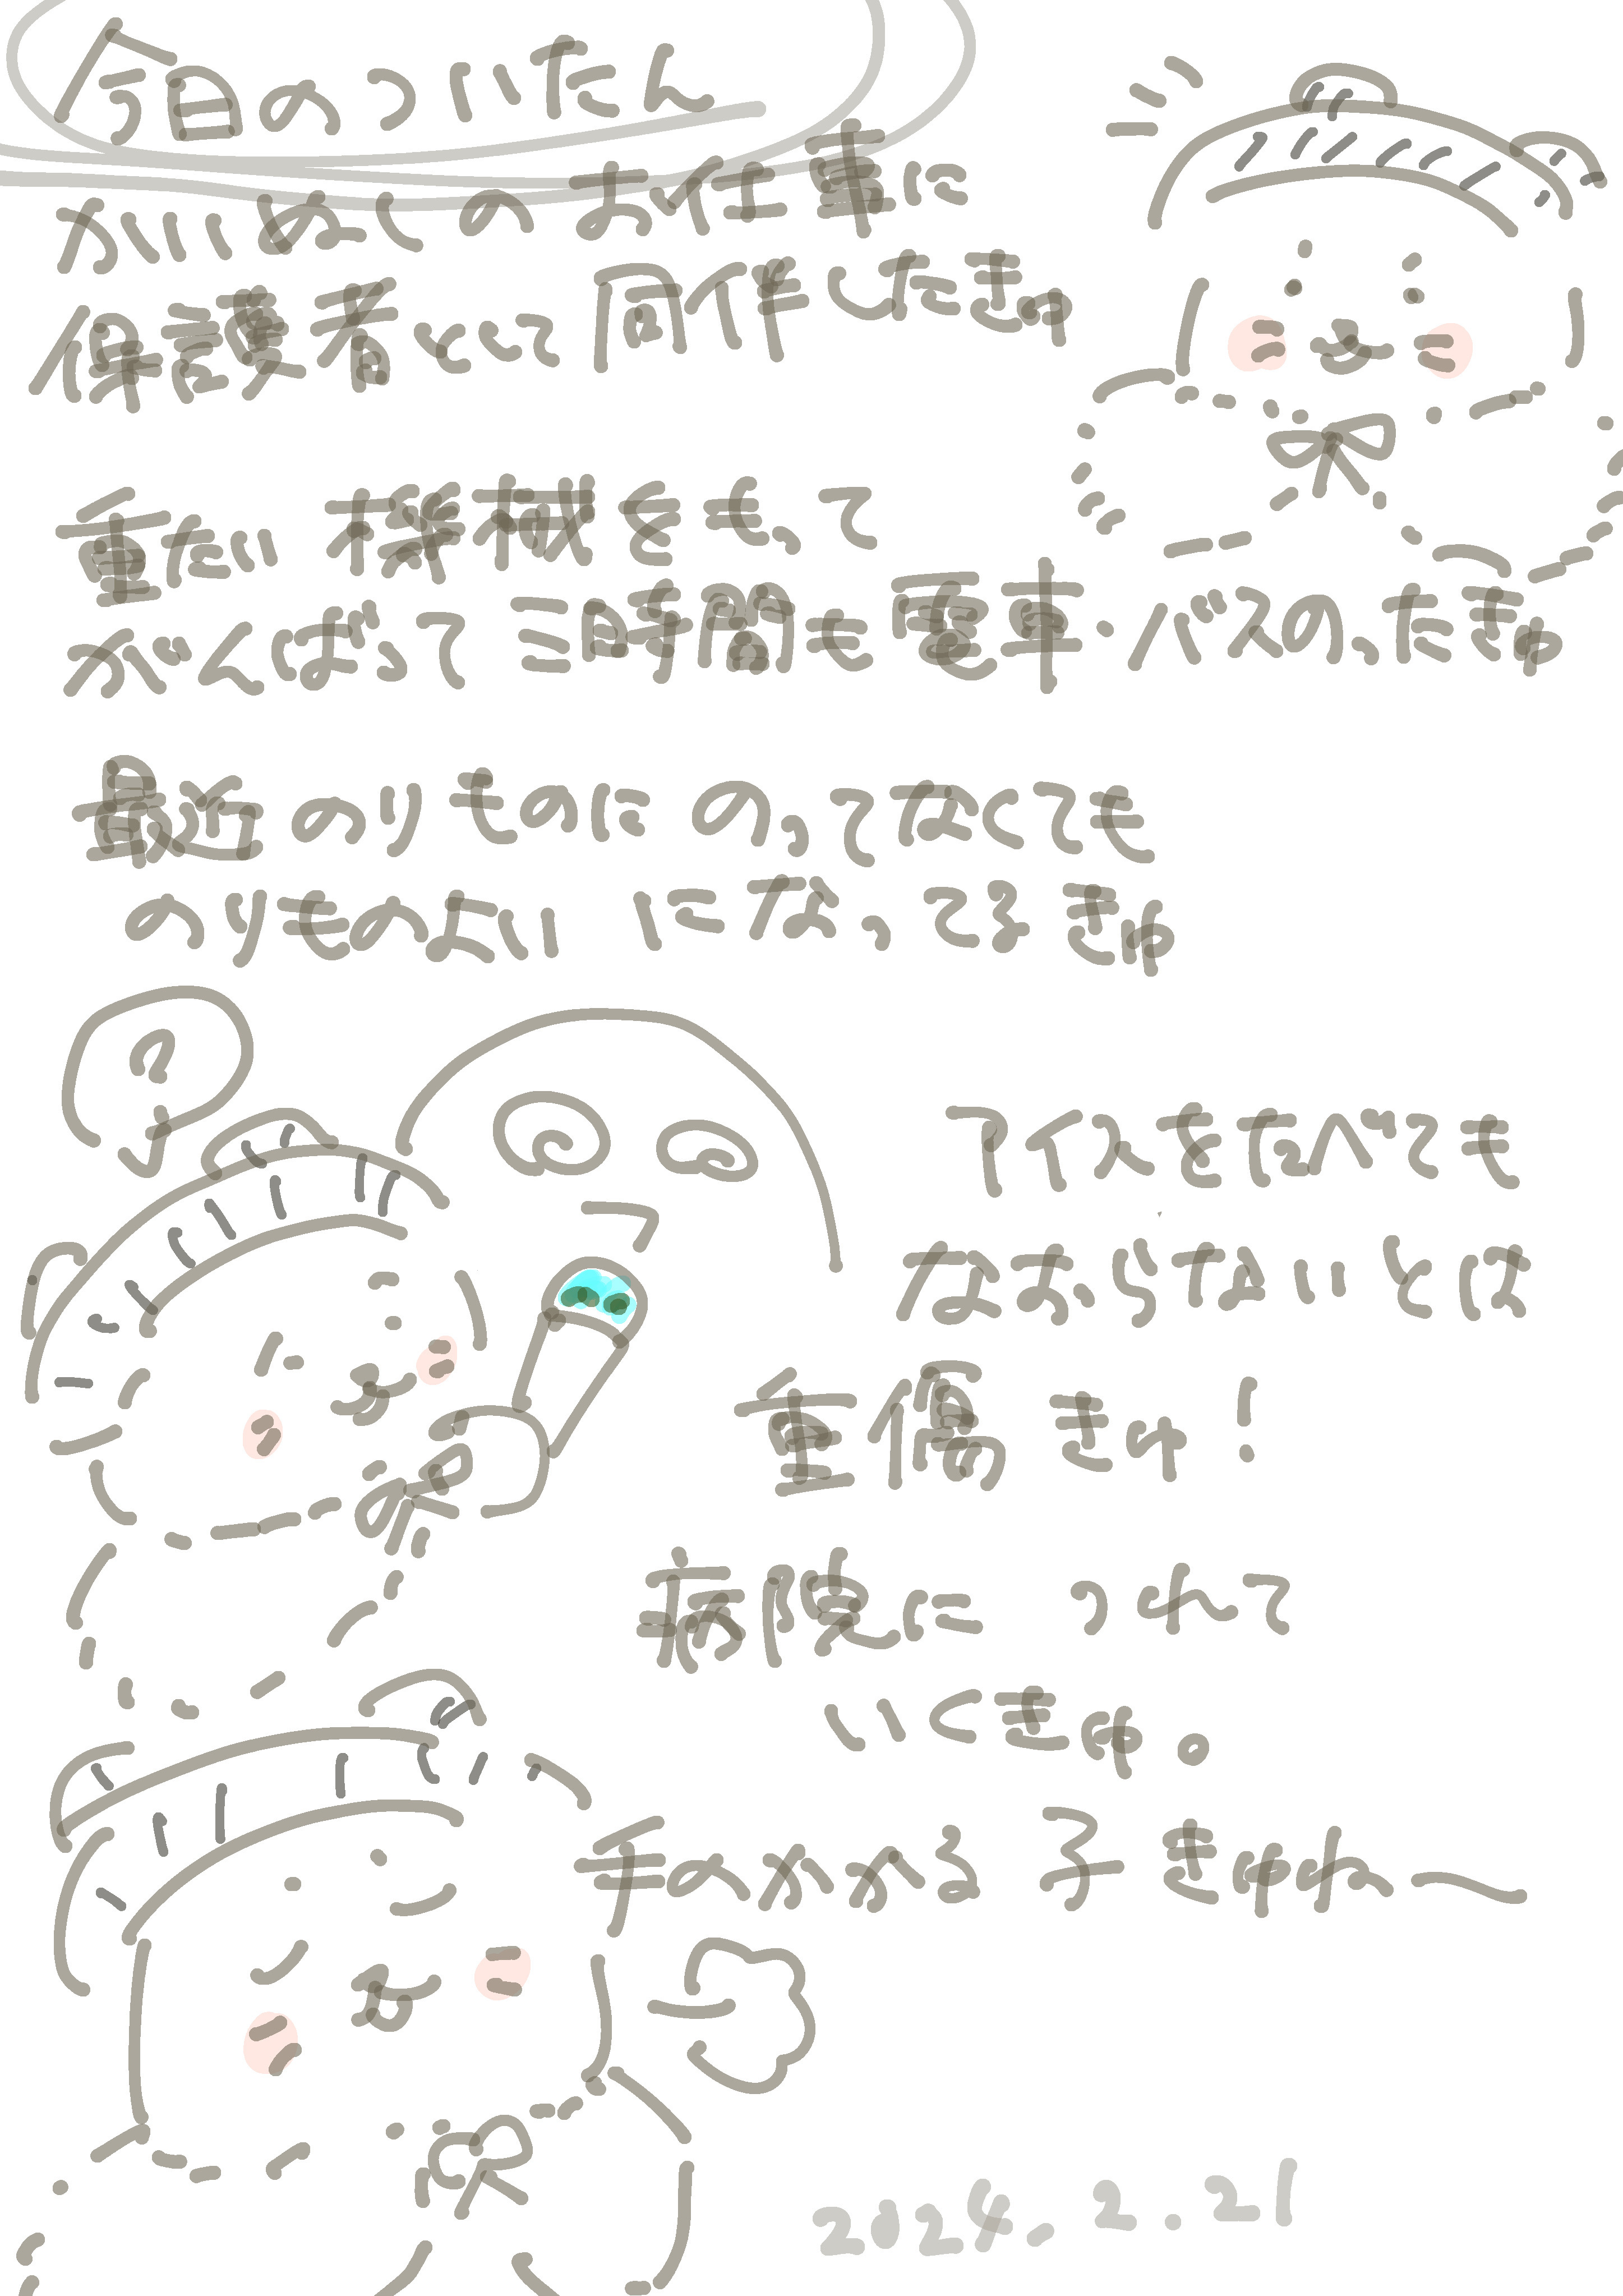 今日のついたん
かいぬしのお仕事に
保護者として同伴したきゅ
重たい機械をもって
がんばって三時間も電車・バスのったきゅ
最近のりものにのってなくても
のりものよいになってるきゅ
アイスをたべても
なおらないとは
重傷きゅ!
病院につれて
いくきゅ。
手のかかる子きゅね〜
2024.2.21